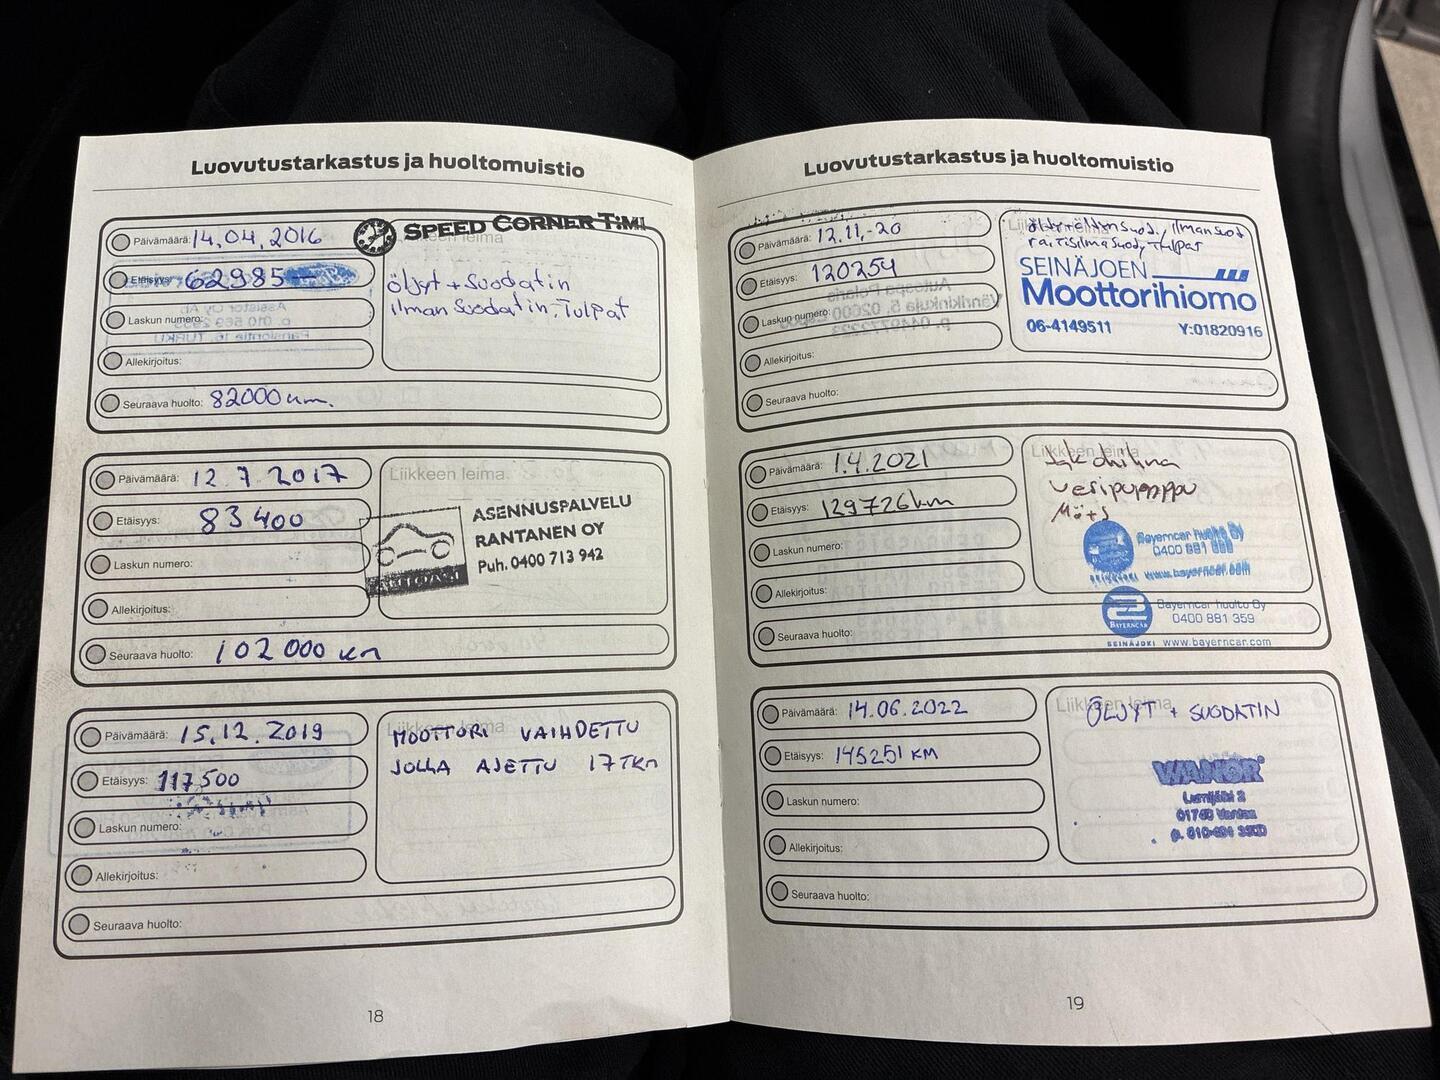 Luovutustarkastus ja huoltomuistio
Päivämäärä: 14.04.2016
Etäisyys: 62985
Laskun numero:
Allekirjoitus:
Seuraava huolto: 82000 km.
SPEED CORNER TMI
öljyt + Suodatin
ilmanSuodatin, Tulpat
Päivämäärä: 12.7.2017
Etäisyys: 83400
Laskun numero:
Allekirjoitus:
Seuraava huolto: 102000 km
Liikkeen leima
ASENNUSPALVELU
RANTANEN OY
Puh. 0400 713 942
Päivämäärä: 15.12.2019
Etäisyys: 117500
Laskun numero:
Allekirjoitus:
Seuraava huolto:
Liikkeen leima
MOOTTORI VAIHDETTU
JOLLA AJETTU 17TKM
18
Luovutustarkastus ja huoltomuistio
Päivämäärä: 12.11.-20
Etäisyys: 120254
Laskun numero:
Allekirjoitus:
Seuraava huolto:
ilmanSuod
raitisilmaSuod, Tulpat
SEINÄJOEN
Moottorihiomo
06-4149511 Y:01820916
Päivämäärä: 1.4.2021
Etäisyys: 129726km
Laskun numero:
Allekirjoitus:
Seuraava huolto:
Liikkeen leima
Jakohihna
Vesipumppu
Bayerncar huolto Oy
www.bayerncar.com
BAYERNCAR
Bayerncar huolto Oy
0400 881 359
SEINÄJOKI www.bayerncar.com
Päivämäärä: 14.06.2022
Etäisyys: 145251 KM
Laskun numero:
Allekirjoitus:
Seuraava huolto:
Liikkeen leima
ÖLJYT + SUODATIN
WANOR
Lumijälki 2
01740 Vantaa
19